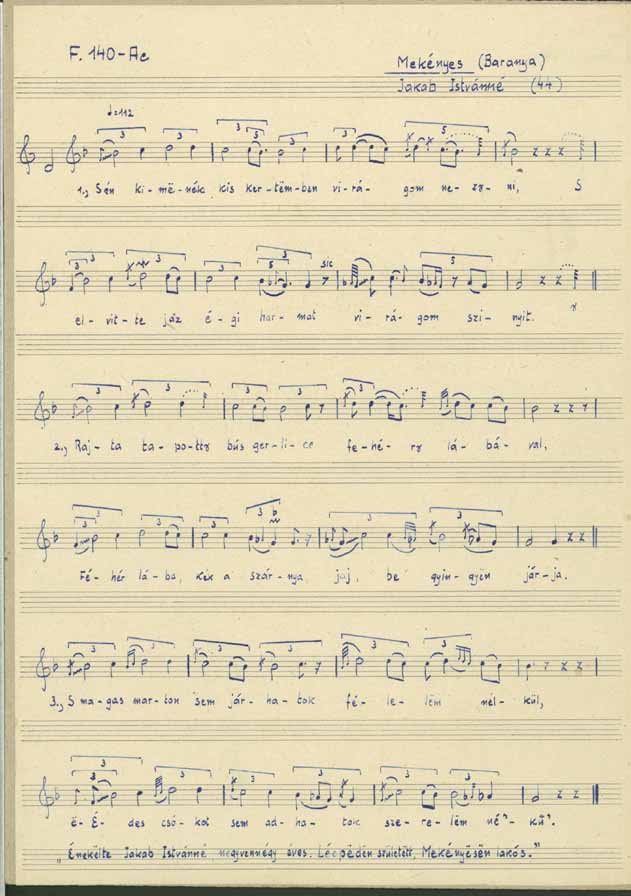 F. 140-Ac
Mekényes (Baranya)
Jakab Istvánné (44)
♩=112
1., Sán ki-mënék kis ker-tëm-ben vi-rá-gom ne-zni, S
sic
el-vit-te jaz é-gi har-mat vi-rá-gom szi-nyit.
2., Raj-ta ta-po-tty bús ger-li-ce fe-hé-ry lá-bá-val,
Fé-hér lá-ba, kék a szár-nya, jaj, be gyin-gyën jár-ja.
3., S ma-gas mar-ton sem jár-ha-tok fé-le-lëm nél-kül,
é-É-des csó-kot sem ad-ha-tok sze-re-lëm né'-kű'.
„Énekëlte Jakab Istvánné, negyvennégy éves. Lécpédën született, Mekényësën lakós."